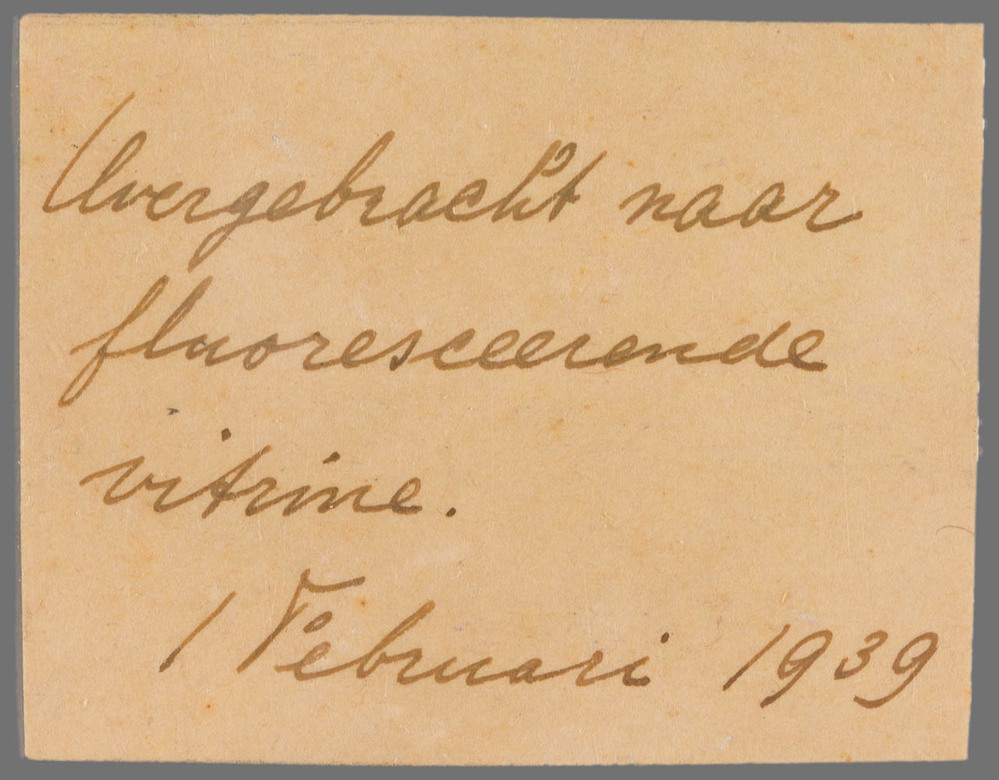 Overgebracht naar
fluoresceerende
vitrine.
1 Februari 1939